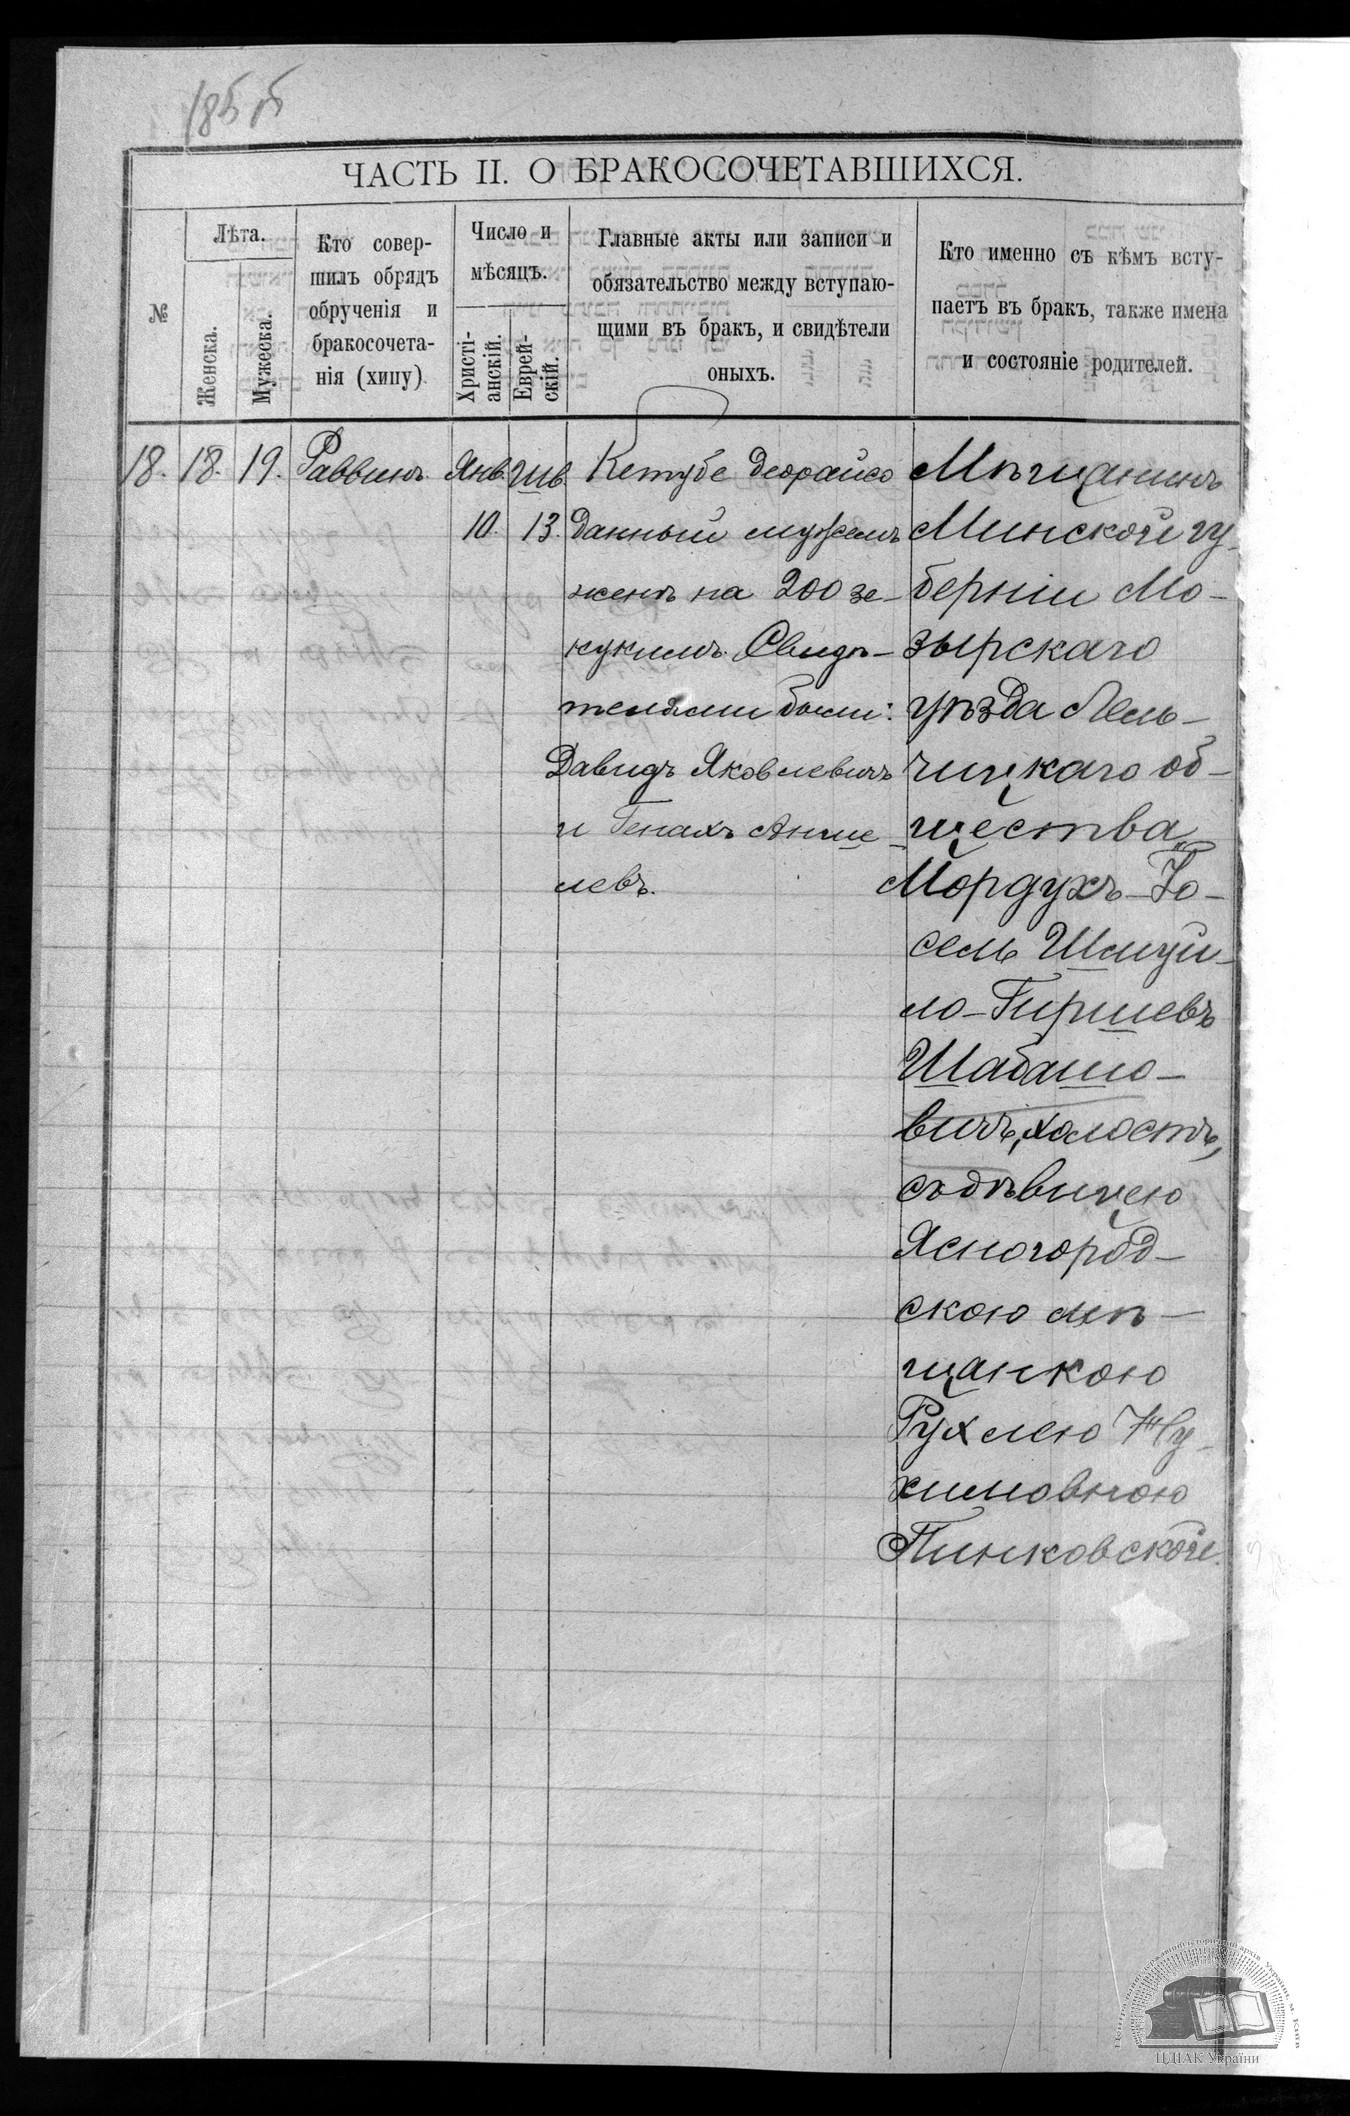 185 б
ЧАСТЬ II. О БРАКОСОЧЕТАВШИХСЯ.
№
Лѣта.
Женска.
Мужеска.
Кто совер-
шилъ обрядъ
обрученія и
бракосочета-
нія (хипу)
Число и
мѣсяцъ.
Христі-
анскій.
Еврей-
скій.
Главные акты или записи и
обязательство между вступаю-
щими въ бракъ, и свидѣтели
оныхъ.
Кто именно съ кѣмъ всту-
паетъ въ бракъ, также имена
и состояніе родителей.
18. 18. 19. Раввинъ Янв. Шв.
10. 13.
Кетубе деорайсо
данный мужемъ
женѣ на 200 зе-
кукимъ. Свидѣ-
телями были:
Давидъ Яковлевичъ
и Генахъ Анше-
левъ.
Мѣщанинъ
Минской гу-
берніи Мо-
зырскаго
уѣзда Лель-
чицкаго об-
щества
Мордухъ-Іо-
сель Шмуй-
ло-Гиршевъ
Шабашо-
вичъ, холостъ,
съ дѣвицею
Ясногород-
скою мѣ-
щанкою
Рухлею Ну-
химовною
Пинковской.
ЦДІАК України